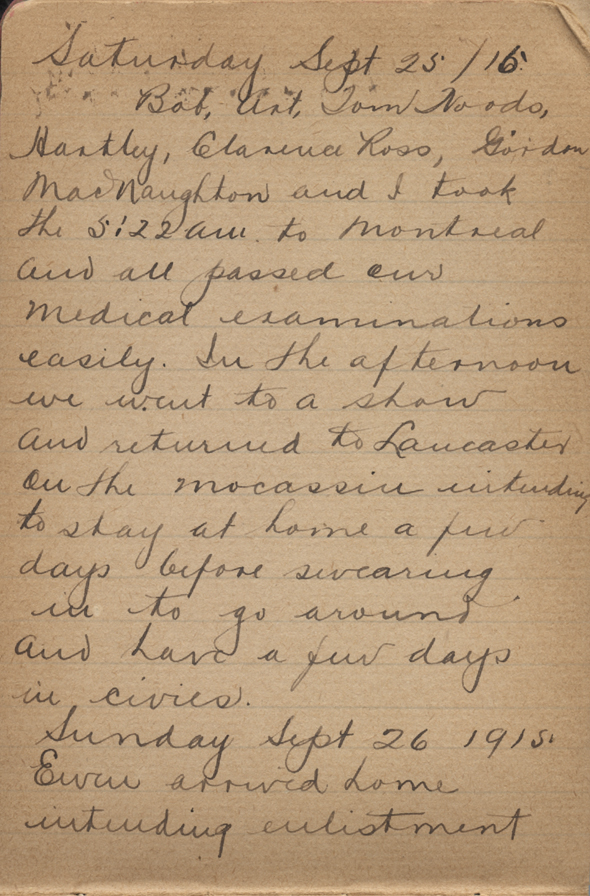 Saturday Sept 25/15
Bob, Art, Tom Woods,
Hartley, Clarence Ross, Gordon
MacNaughton and I took
the 5:22 am. to Montreal
and all passed our
medical examinations
easily. In the afternoon
we went to a show
and returned to Lancaster
on the mocassin intending
to stay at home a few
days before swearing
in to go around
and have a few days
in civies.
Sunday Sept 26 1915.
Ewen arrived home
intending enlistment